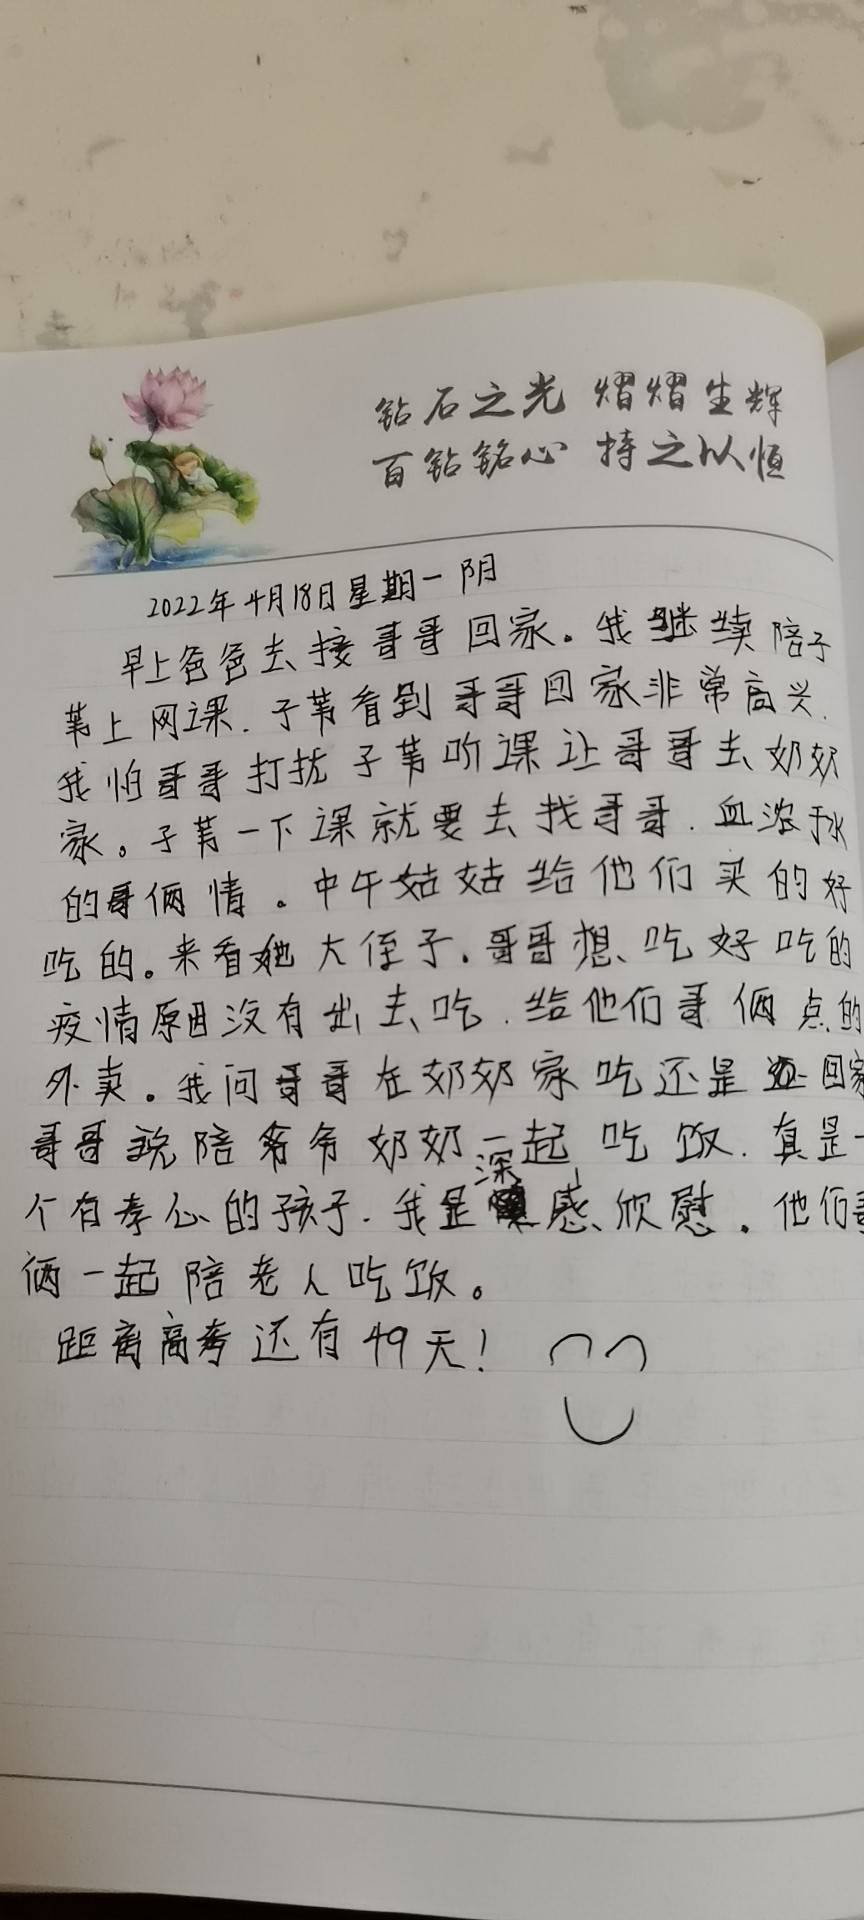 钻石之光 熠熠生辉
百钻铭心 持之以恒
2022年4月18日星期一 阴
早上爸爸去接哥哥回家。我继续陪子
苇上网课.子苇看到哥哥回家非常高兴.
我怕哥哥打扰子苇听课让哥哥去奶奶
家。子苇一下课就要去找哥哥.血浓于水
的哥俩情。中午姑姑给他们买的好
吃的。来看她大侄子.哥哥想吃好吃的
疫情原因没有出去吃.给他们哥俩点的
外卖。我问哥哥在奶奶家吃还是回家
哥哥说陪爷爷奶奶一起吃饭.真是一
个有孝心的孩子.我是深感欣慰。他们哥
俩一起陪老人吃饭。
距离高考还有49天!